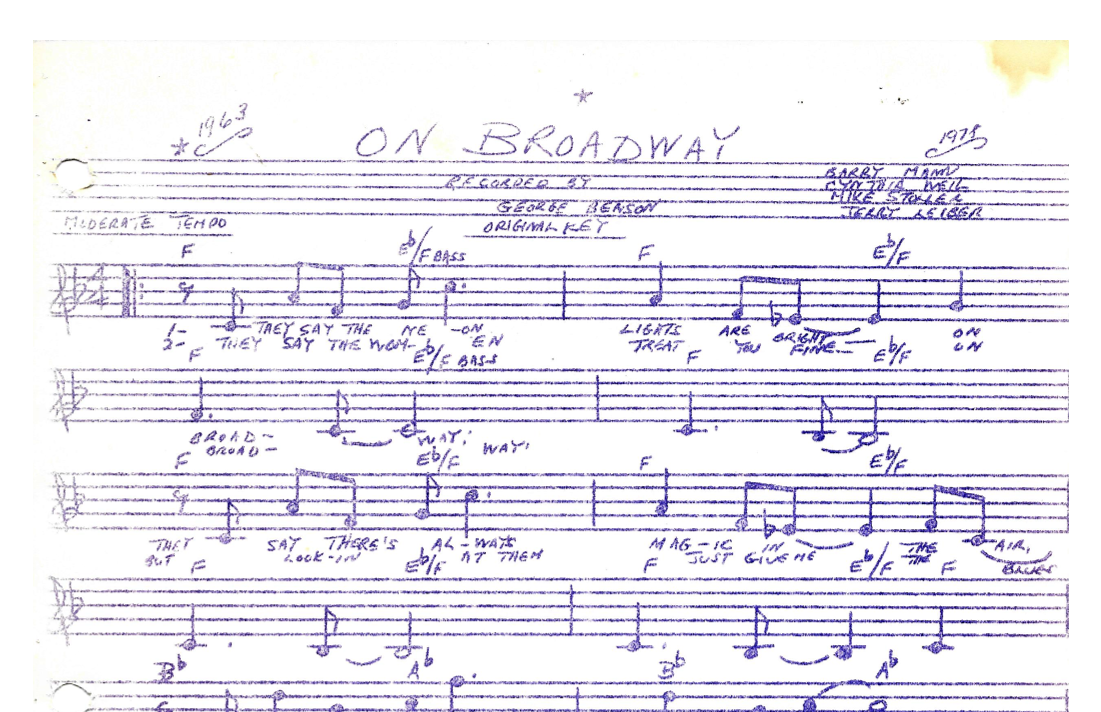 * 1963
*
ON BROADWAY
1978
RECORDED BY
BARRY MANN
CYNTHIA WEIL
MIKE STOLLER
JERRY LEIBER
GEORGE BENSON
MODERATE TEMPO
ORIGINAL KEY
F E♭/F BASS F E♭/F
1- THEY SAY THE NE -ON LIGHTS ARE BRIGHT ON
2- THEY SAY THE WOM- EN TREAT YOU FINE ON
F E♭/F BASS F E♭/F
BROAD- WAY;
BROAD- WAY;
F E♭/F F E♭/F
THEY SAY THERE'S AL-WAYS MAG-IC IN THE AIR,
BUT LOOK-IN AT THEM JUST GIVE ME THE BLUES
F E♭/F F E♭/F F
B♭ A♭ B♭ A♭